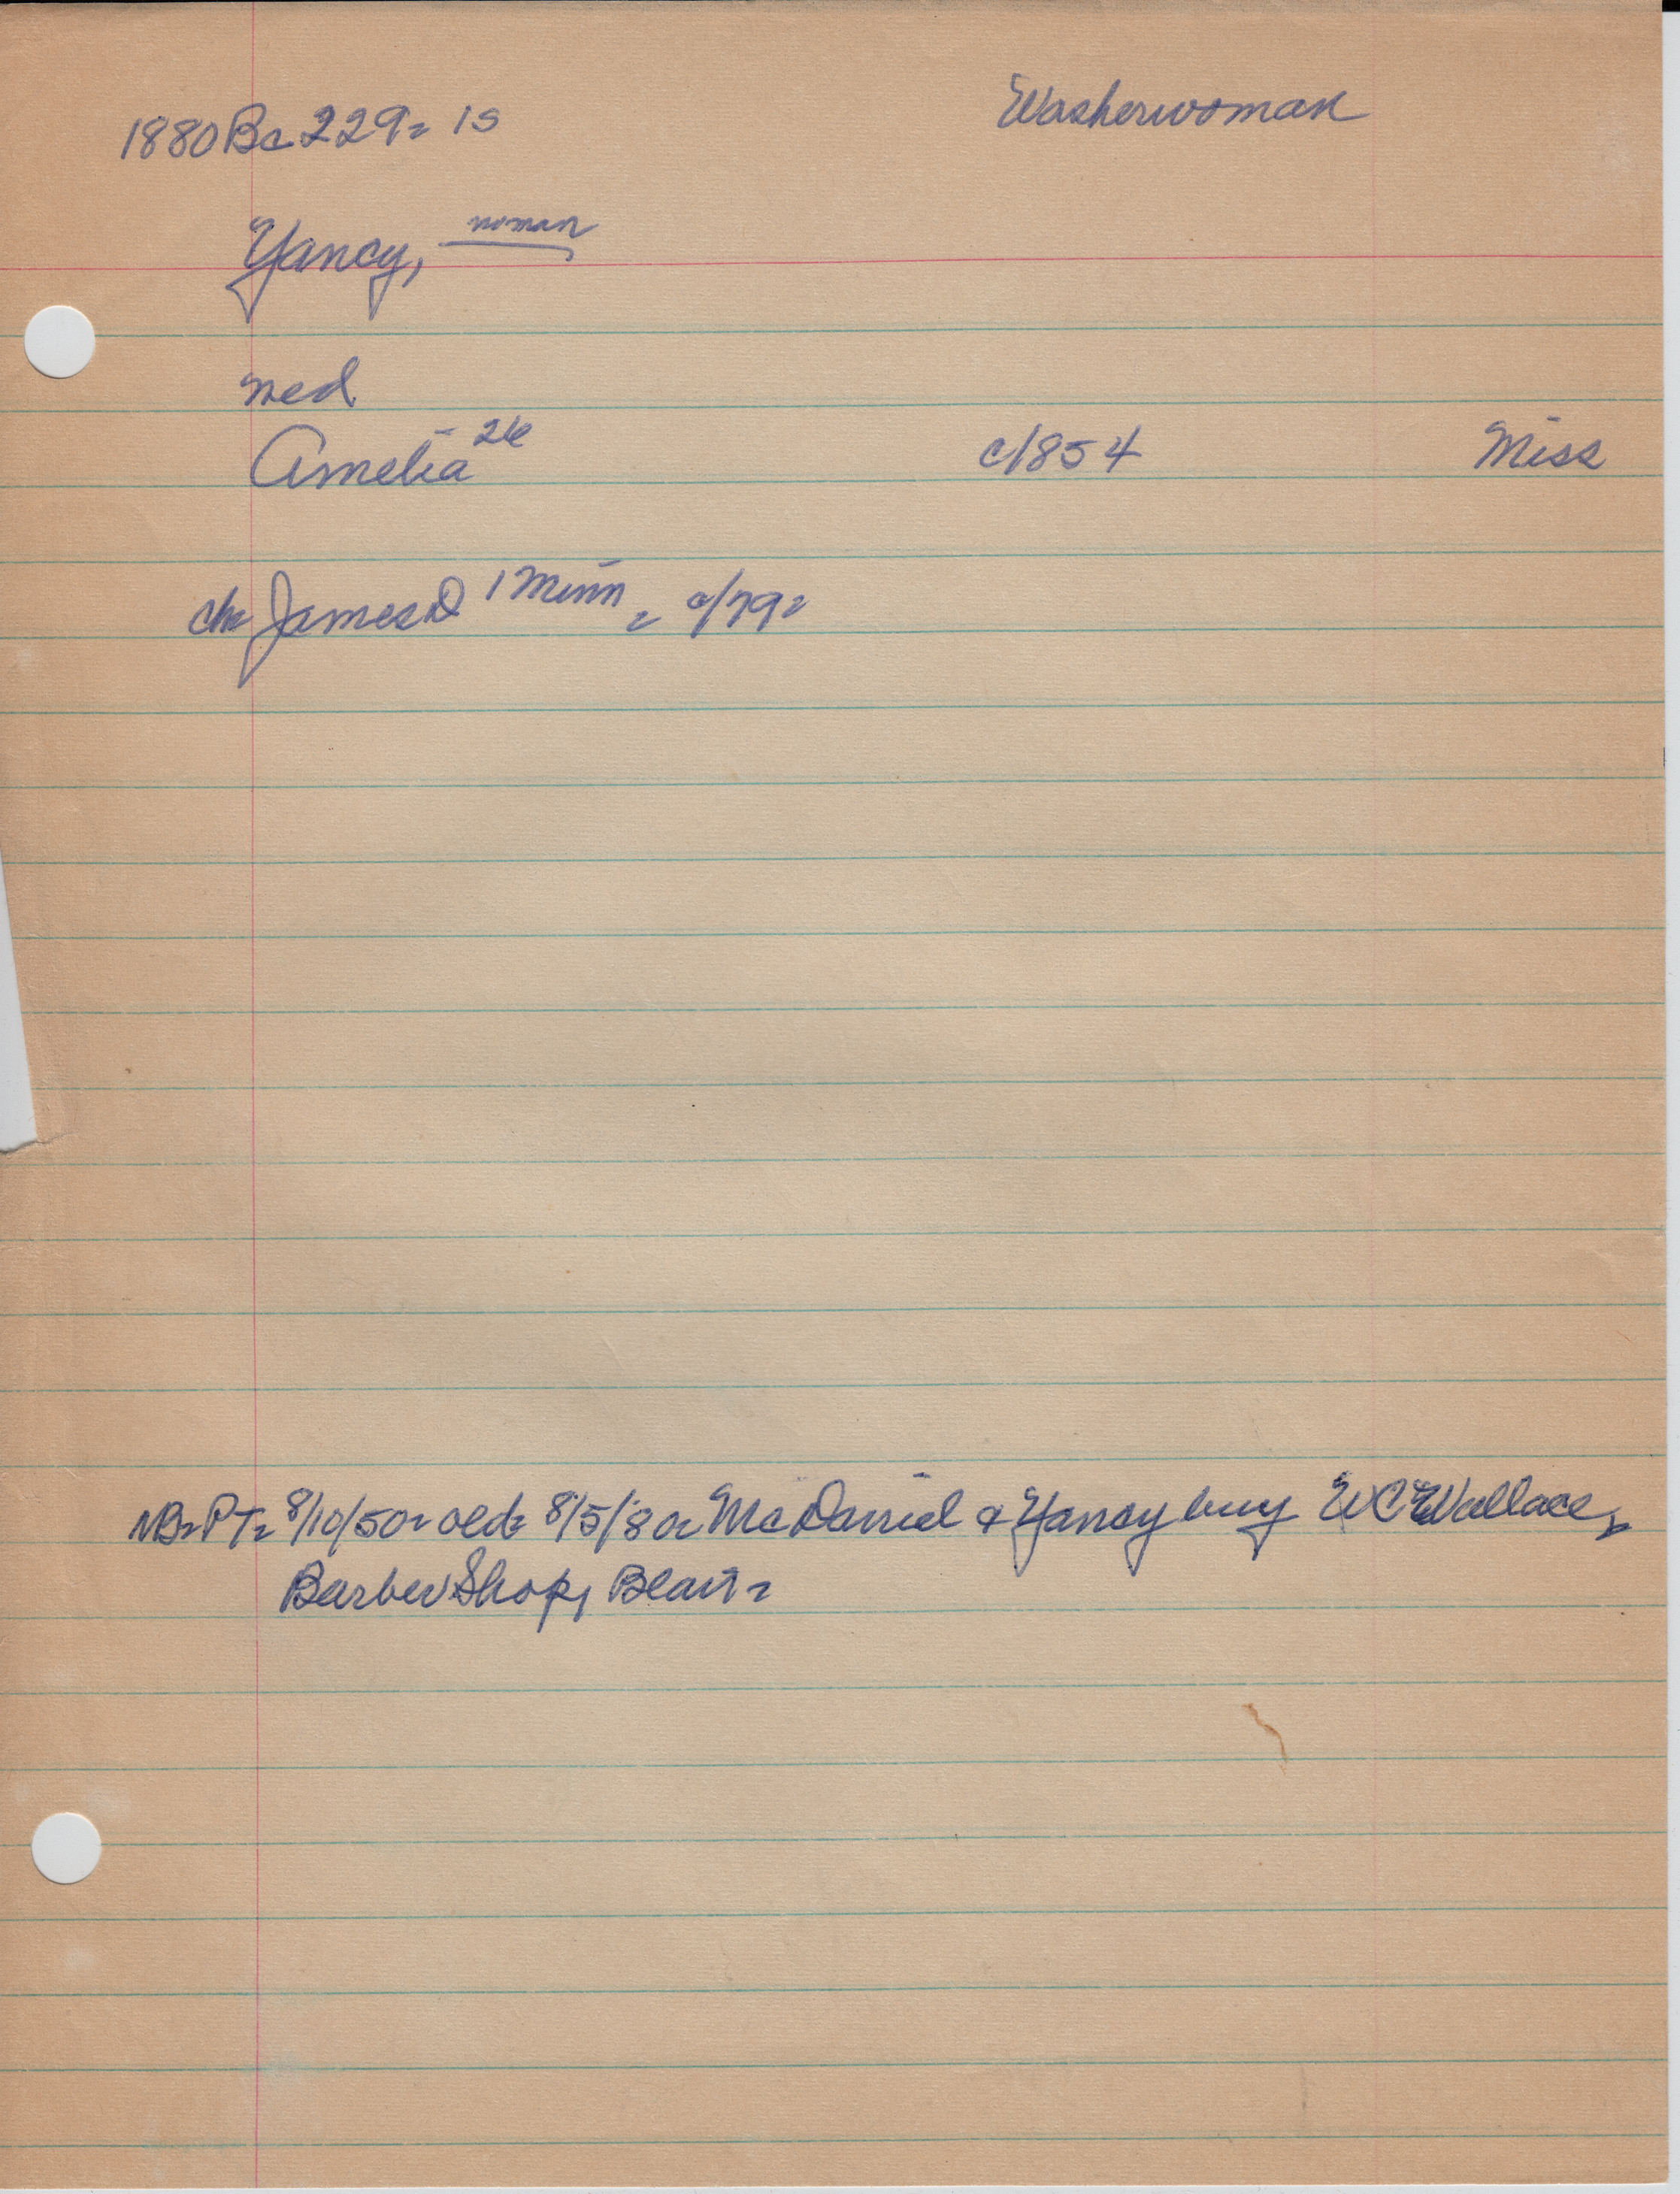 1880 Bc 229= 1s
Washerwoman
Yancy, no man
Ned
Amelia 26 c/1854 Miss
ch= James D 1 Minn = c/79=
NB= PT= 8/10/50= old= 8/5/80= McDaniel & Yancy buy WC Wallace,
Barber Shop, Blair=